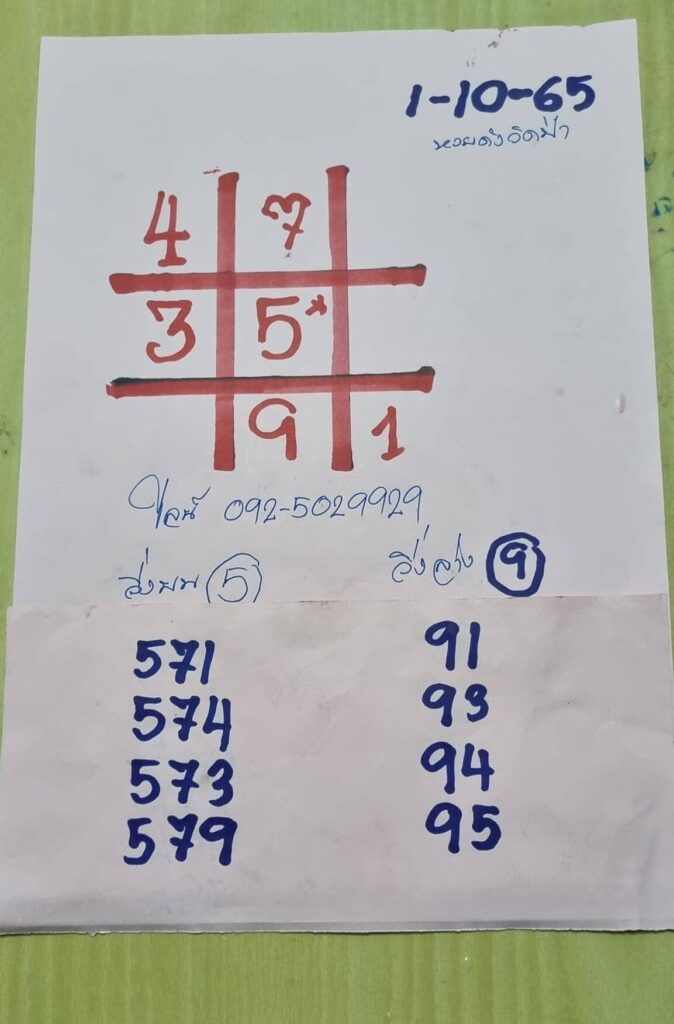 1-10-65
หวยดังอิดป่า
4 7
3 5*
9 1
ไลน์ 092-5029929
วิ่งบน 5 วิ่งล่าง 9
571 91
574 93
573 94
579 95